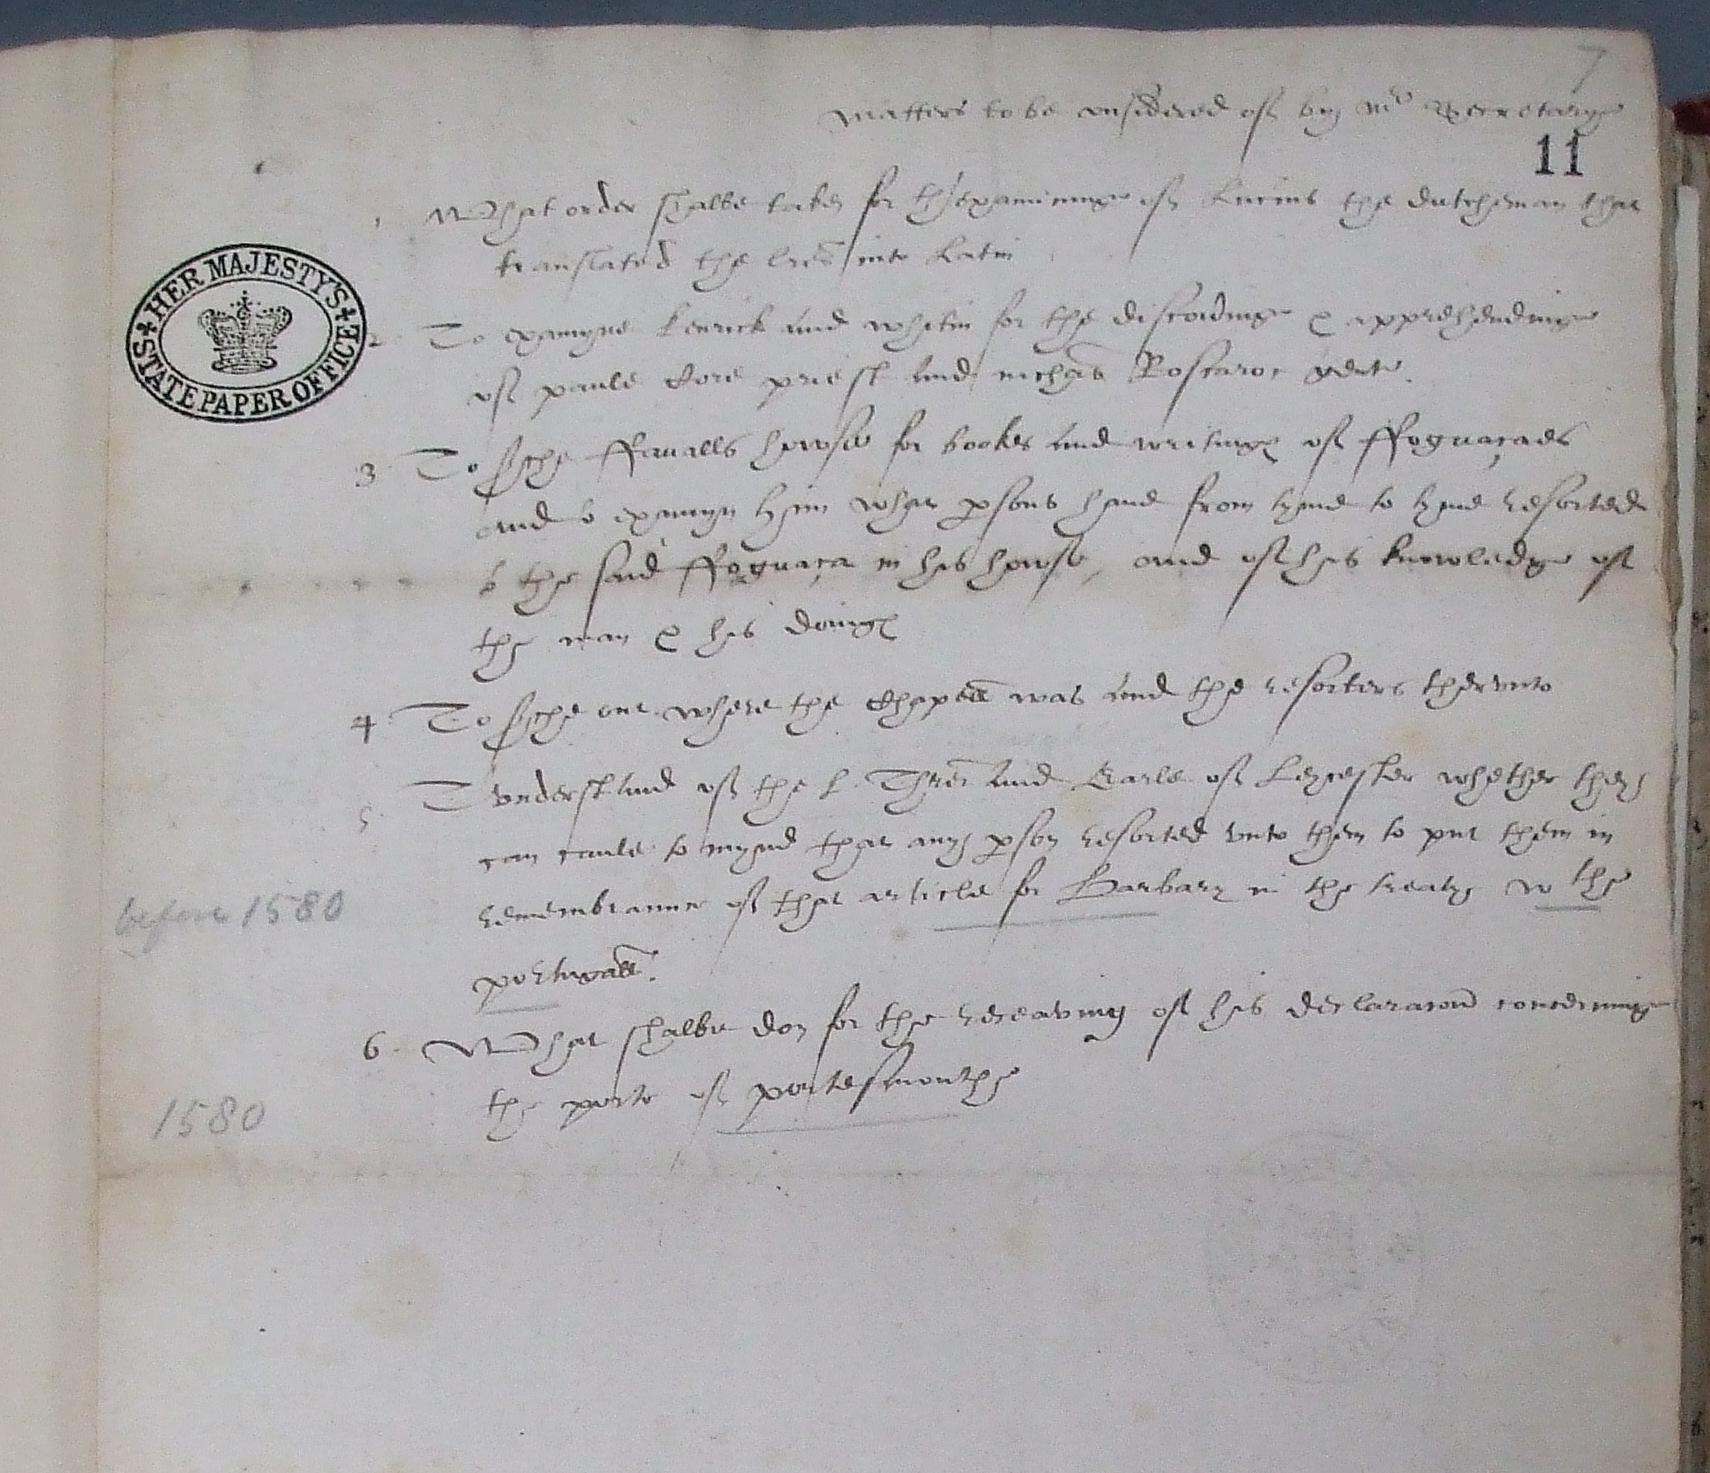 7
Matters to be considered of by Mr Secretary
11
1 What order shalbe taken for th'examininge of Lucius the dutcheman that
translated the lres into Latin
HER MAJESTY'S STATE PAPER OFFICE
2 To examyne Kenrick and whitin for the discoidinge & apprehendinge
of paule priest and nichas Roscaroc gent.
3 To sche ffaualls howse for bookes and writings of ffoguaçaes
and to examyn hym what psons haue from tyme to tyme resorted
to the said ffoguaça in his howse, and of his knowledge of
the man & his doings
4 To sche out where the Chapell was and the resorters thervnto
5 T'vnderstand of the L. Threr and Earle of Leycester whether they
can caule to mynd that any pson resorted vnto them to put them in
before 1580
remembraunce of that article for Barbary in the treaty wth the
portugall.
6. What shalbe don for the receaving of his declaracon concerninge
1580
the porte of portesmouthe